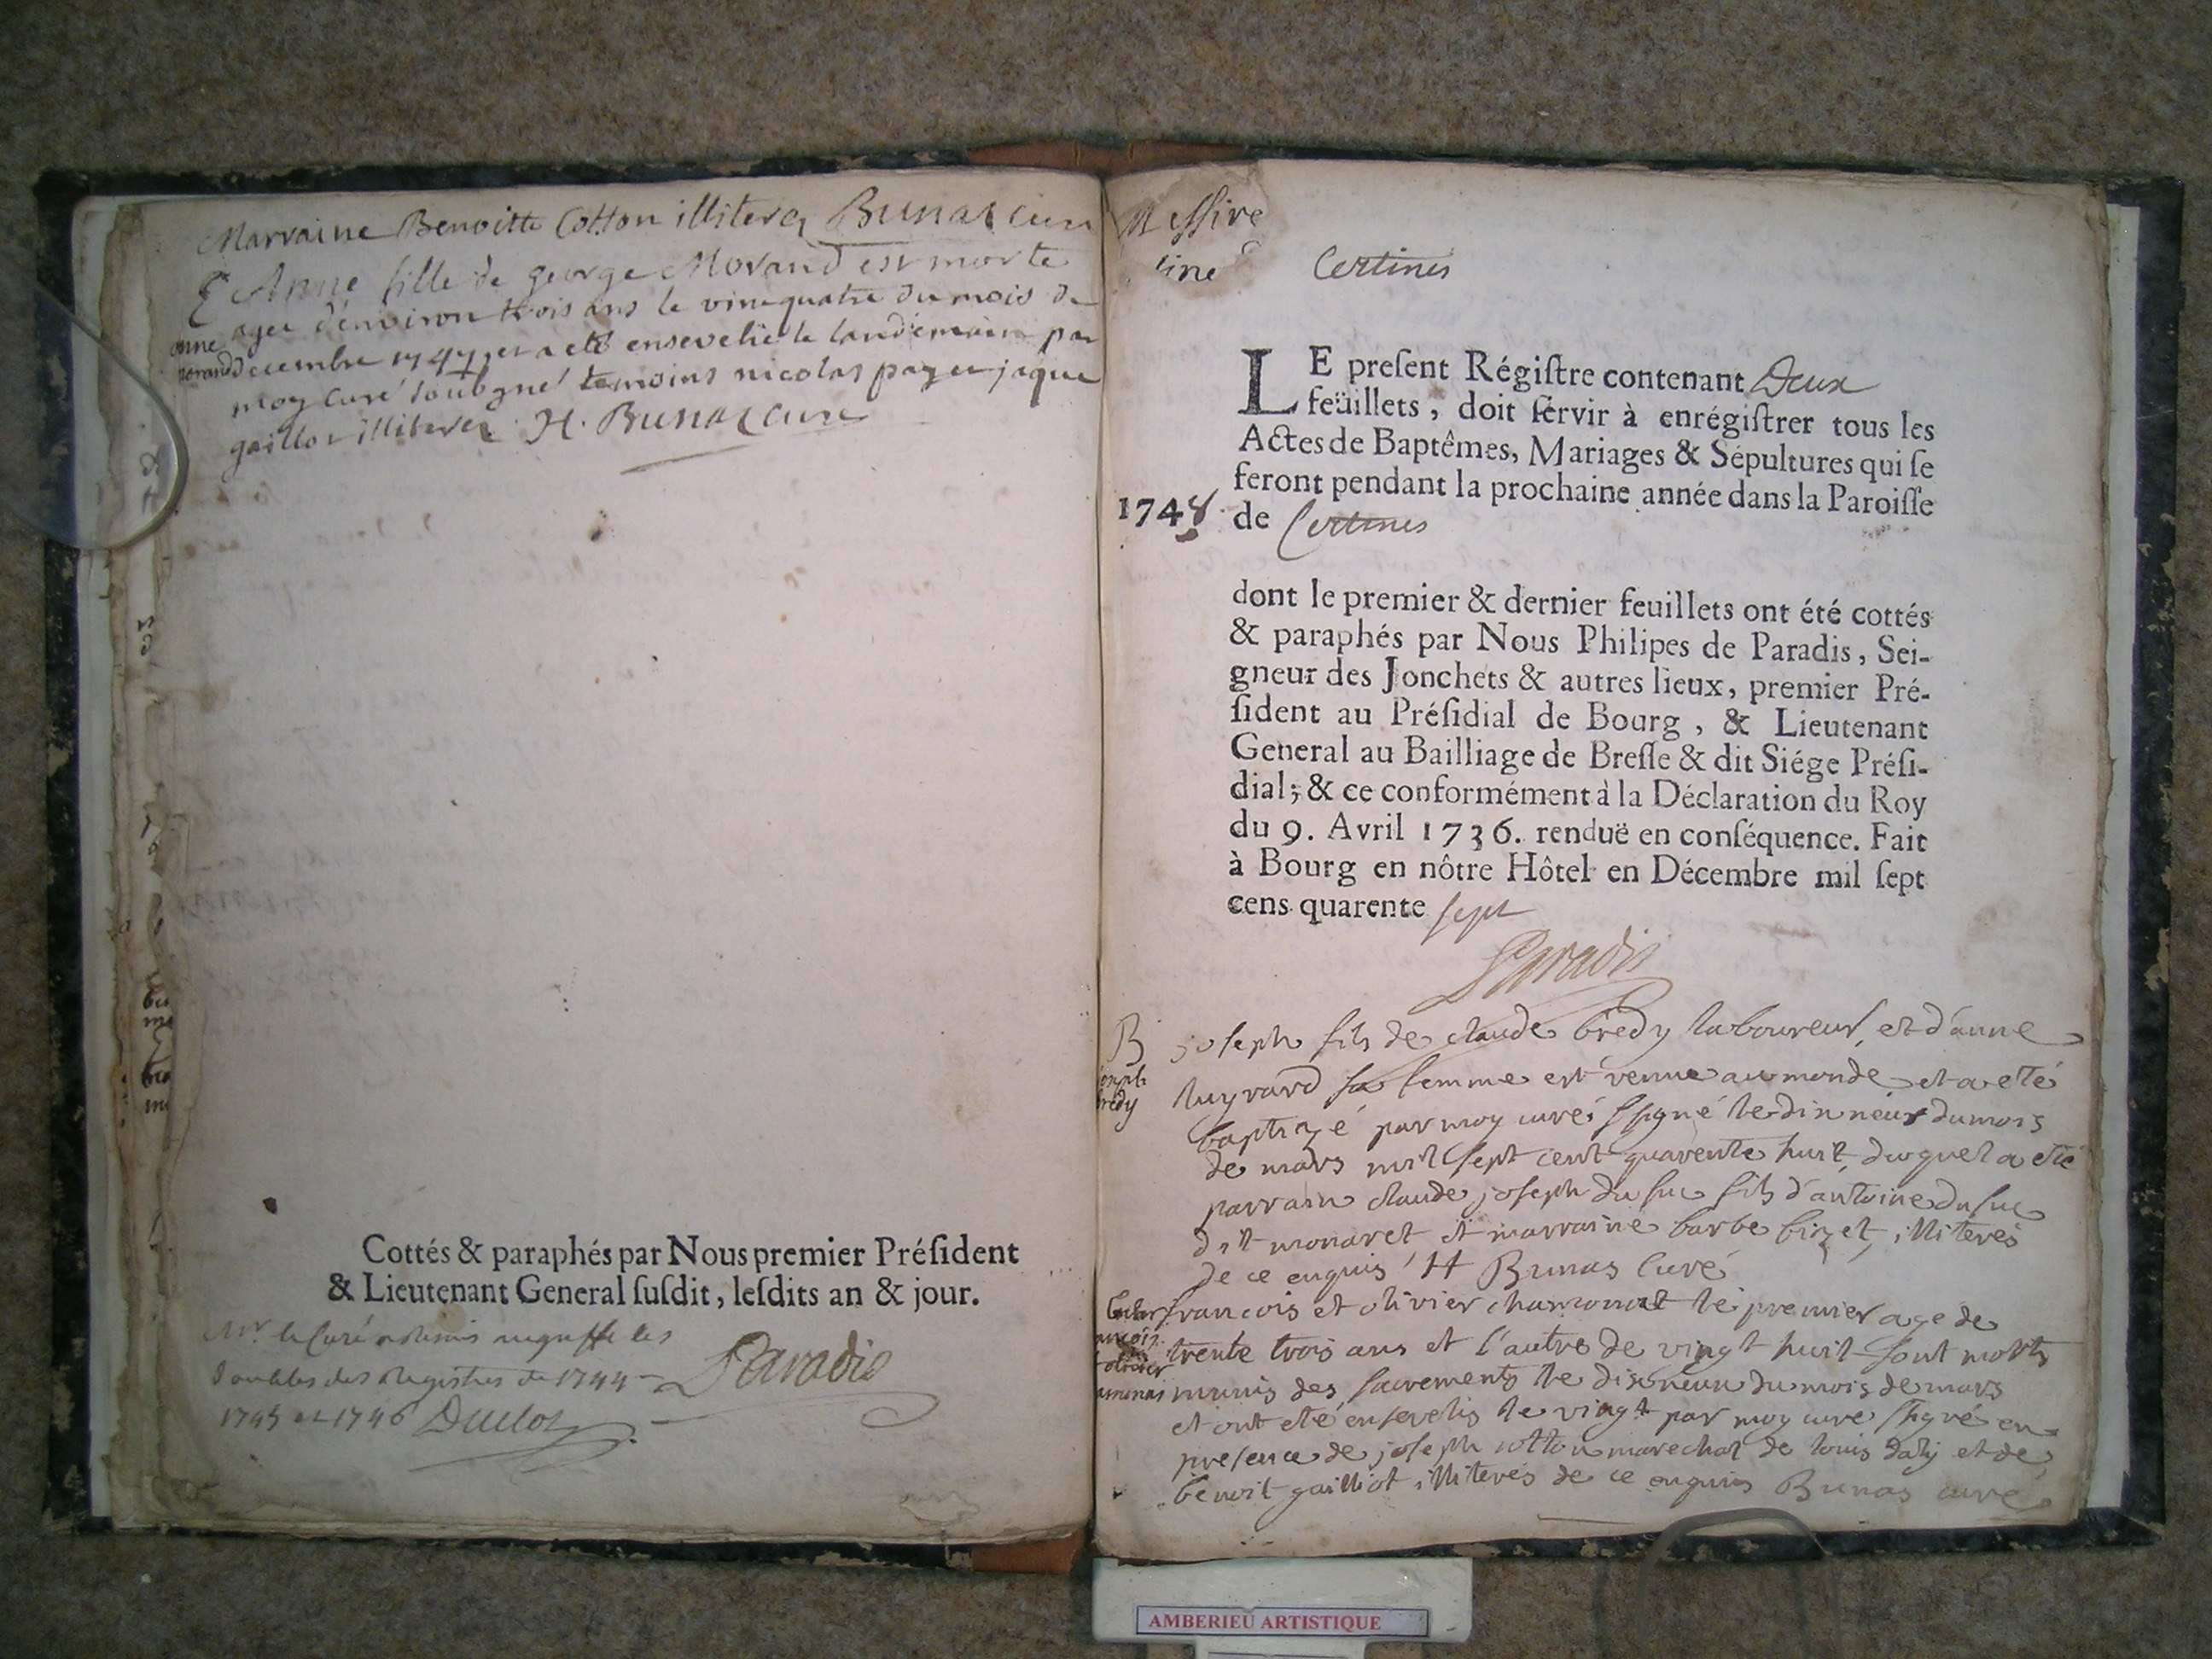 Marraine Benoitte Cotton illiterez Bunas curé
E Anne fille de george Morand est morte
agee d'environ trois ans le vinequatre du mois de
anne
morand decembre 1747 et a eté ensevelie le landemain par
moy curé soubgné temoins nicolas pager jaque
gaillot illiterez H. Bunas Cure
Cottés & paraphés par Nous premier Préſident
& Lieutenant General ſuſdit, leſdits an & jour.
Mr le Curé a remis au greffe les
doubles des Registres de 1744
1745 et 1746 Duclos
Paradis
Messire
Certines
LE preſent Régiſtre contenant Deux
feüillets, doit ſervir à enrégiſtrer tous les
Actes de Baptêmes, Mariages & Sépultures qui ſe
feront pendant la prochaine année dans la Paroiſſe
1748 de Certines
dont le premier & dernier feuillets ont été cottés
& paraphés par Nous Philipes de Paradis, Sei-
gneur des Jonchets & autres lieux, premier Pré-
ſident au Préſidial de Bourg, & Lieutenant
General au Bailliage de Breſſe & dit Siége Préſi-
dial; & ce conformément à la Déclaration du Roy
du 9. Avril 1736. renduë en conſéquence. Fait
à Bourg en nôtre Hôtel en Décembre mil ſept
cens quarente sept
Paradis
B joseph fils de claude bredy laboureur, et d'anne
bredy luyrard sa femme est venue au monde et a eté
baptizé par moy curé ssigné le dix neuf du mois
de mars mil sept cent quarente huit, duquel a eté
parrain claude joseph du suc fils d'antoine du suc
dit monaret et marraine barbe bizet, illiterés
de ce enquis H Bunas Curé
francois et olivier chamonat le premier age de
trente trois ans et l'autre de vingt huit sont morts
munis des sacrements le dix neuf du mois de mars
et ont eté ensevelis le vingt par moy curé ssigné en
presence de joseph cotton marechal de louis daly et de
benoit gailliot illiterés de ce enquis Bunas curé
AMBERIEU ARTISTIQUE